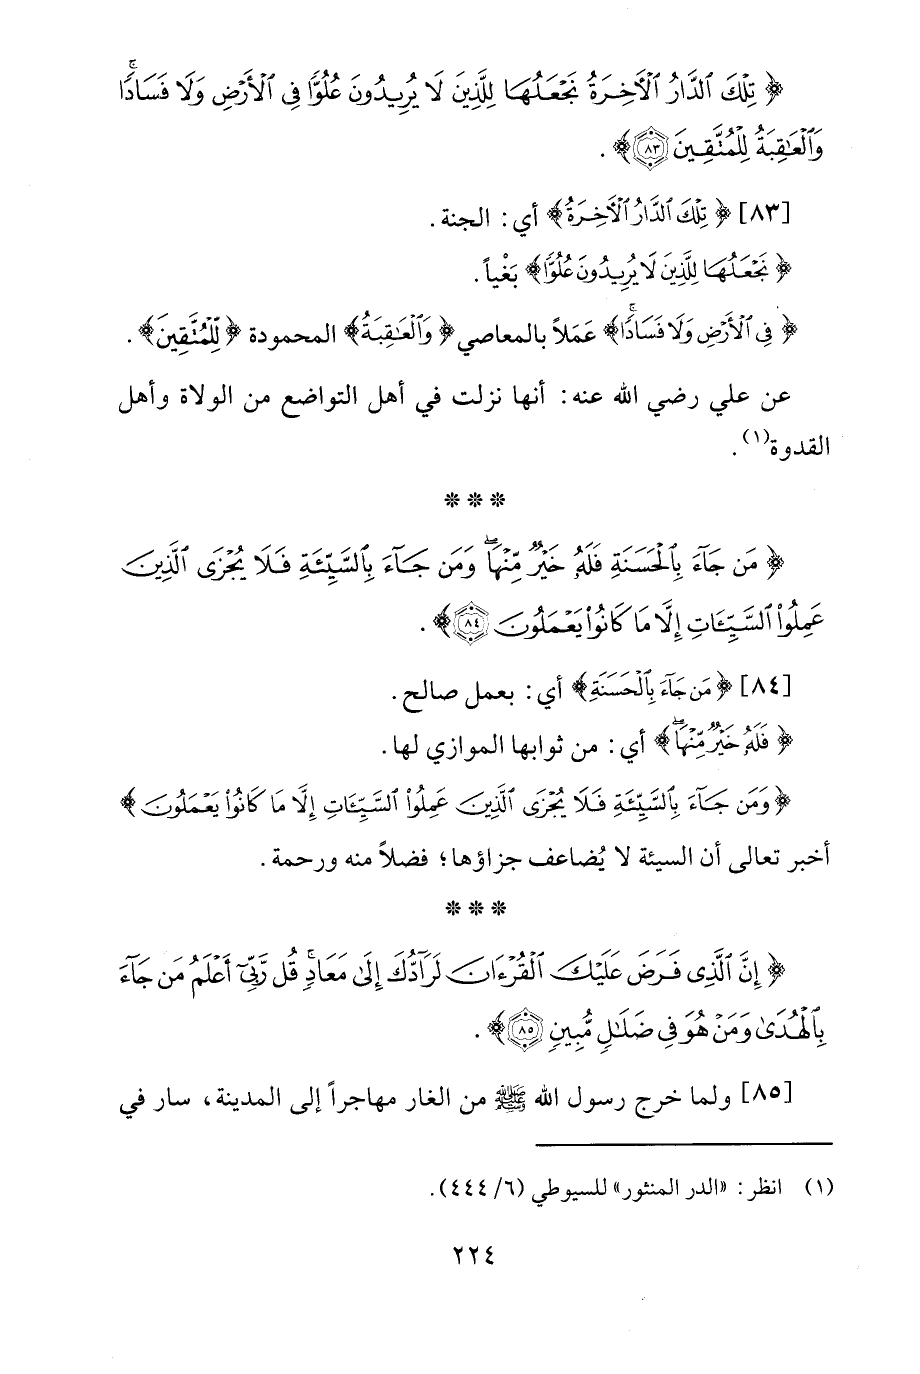 ﴿ تِلْكَ ٱلدَّارُ ٱلْأَخِرَةُ نَجْعَلُهَا لِلَّذِينَ لَا يُرِيدُونَ عُلُوًّا فِى ٱلْأَرْضِ وَلَا فَسَادًاۚ
وَٱلْعَٰقِبَةُ لِلْمُتَّقِينَ ٨٣﴾ .
[٨٣] ﴿ تِلْكَ ٱلدَّارُ ٱلْأَخِرَةُ﴾ أي: الجنة .
﴿ نَجْعَلُهَا لِلَّذِينَ لَا يُرِيدُونَ عُلُوًّا﴾ بَغْياً .
﴿ فِى ٱلْأَرْضِ وَلَا فَسَادًاۚ﴾ عَمَلاً بالمعاصي ﴿ وَٱلْعَٰقِبَةُ﴾ المحمودة ﴿ لِلْمُتَّقِينَ﴾ .
عن علي رضي الله عنه: أنها نزلت في أهل التواضع من الولاة وأهل
القدوة(١) .
* * *
﴿ مَن جَآءَ بِٱلْحَسَنَةِ فَلَهُۥ خَيْرٌ مِّنْهَاۖ وَمَن جَآءَ بِٱلسَّيِّئَةِ فَلَا يُجْزَى ٱلَّذِينَ
عَمِلُوا۟ ٱلسَّيِّئَاتِ إِلَّا مَا كَانُوا۟ يَعْمَلُونَ ٨٤﴾ .
[٨٤] ﴿ مَن جَآءَ بِٱلْحَسَنَةِ﴾ أي: بعمل صالح .
﴿ فَلَهُۥ خَيْرٌ مِّنْهَاۖ﴾ أي: من ثوابها الموازي لها .
﴿ وَمَن جَآءَ بِٱلسَّيِّئَةِ فَلَا يُجْزَى ٱلَّذِينَ عَمِلُوا۟ ٱلسَّيِّئَاتِ إِلَّا مَا كَانُوا۟ يَعْمَلُونَ﴾
أخبر تعالى أن السيئة لا يُضاعف جزاؤها؛ فضلاً منه ورحمة .
* * *
﴿ إِنَّ ٱلَّذِى فَرَضَ عَلَيْكَ ٱلْقُرْءَانَ لَرَآدُّكَ إِلَىٰ مَعَادٍۚ قُل رَّبِّىٓ أَعْلَمُ مَن جَآءَ
بِٱلْهُدَىٰ وَمَنْ هُوَ فِى ضَلَٰلٍ مُّبِينٍ ٨٥﴾ .
[٨٥] ولما خرج رسول الله ﷺ من الغار مهاجراً إلى المدينة، سار في
(١) انظر: «الدر المنثور» للسيوطي (٦/ ٤٤٤).
٢٢٤